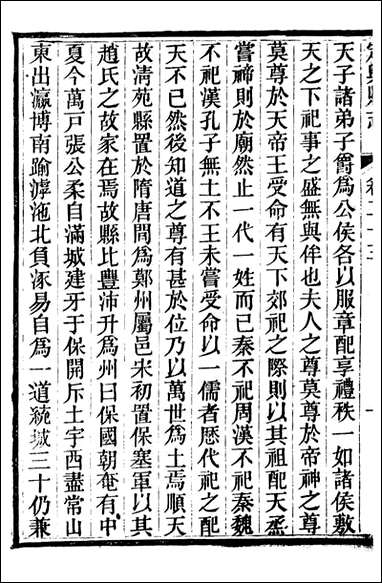 定興縣志 卷二十三 一
天子諸弟子爵爲公侯各以服章配享禮秩一如諸侯敷
天之下祀事之盛無與侔也夫人之尊莫尊於帝神之尊
莫尊於天帝王受命有天下郊祀之際則以其祖配天烝
嘗禘則於廟然止一代一姓而已秦不祀周漢不祀秦魏
不祀漢孔子無土不王未嘗受命以一儒者歷代祀之配
天不已然後知道之尊有甚於位乃以萬世爲土焉順天
故淸苑縣置於隋唐間爲鄭州屬邑宋初置保塞軍以其
趙氏之故家在焉故縣比豐沛升爲州曰保國朝奄有中
夏今萬戸張公柔自滿城建牙于保開斥土宇西盡常山
東出瀛博南踰滹沲北負涿易自爲一道統城三十仍兼